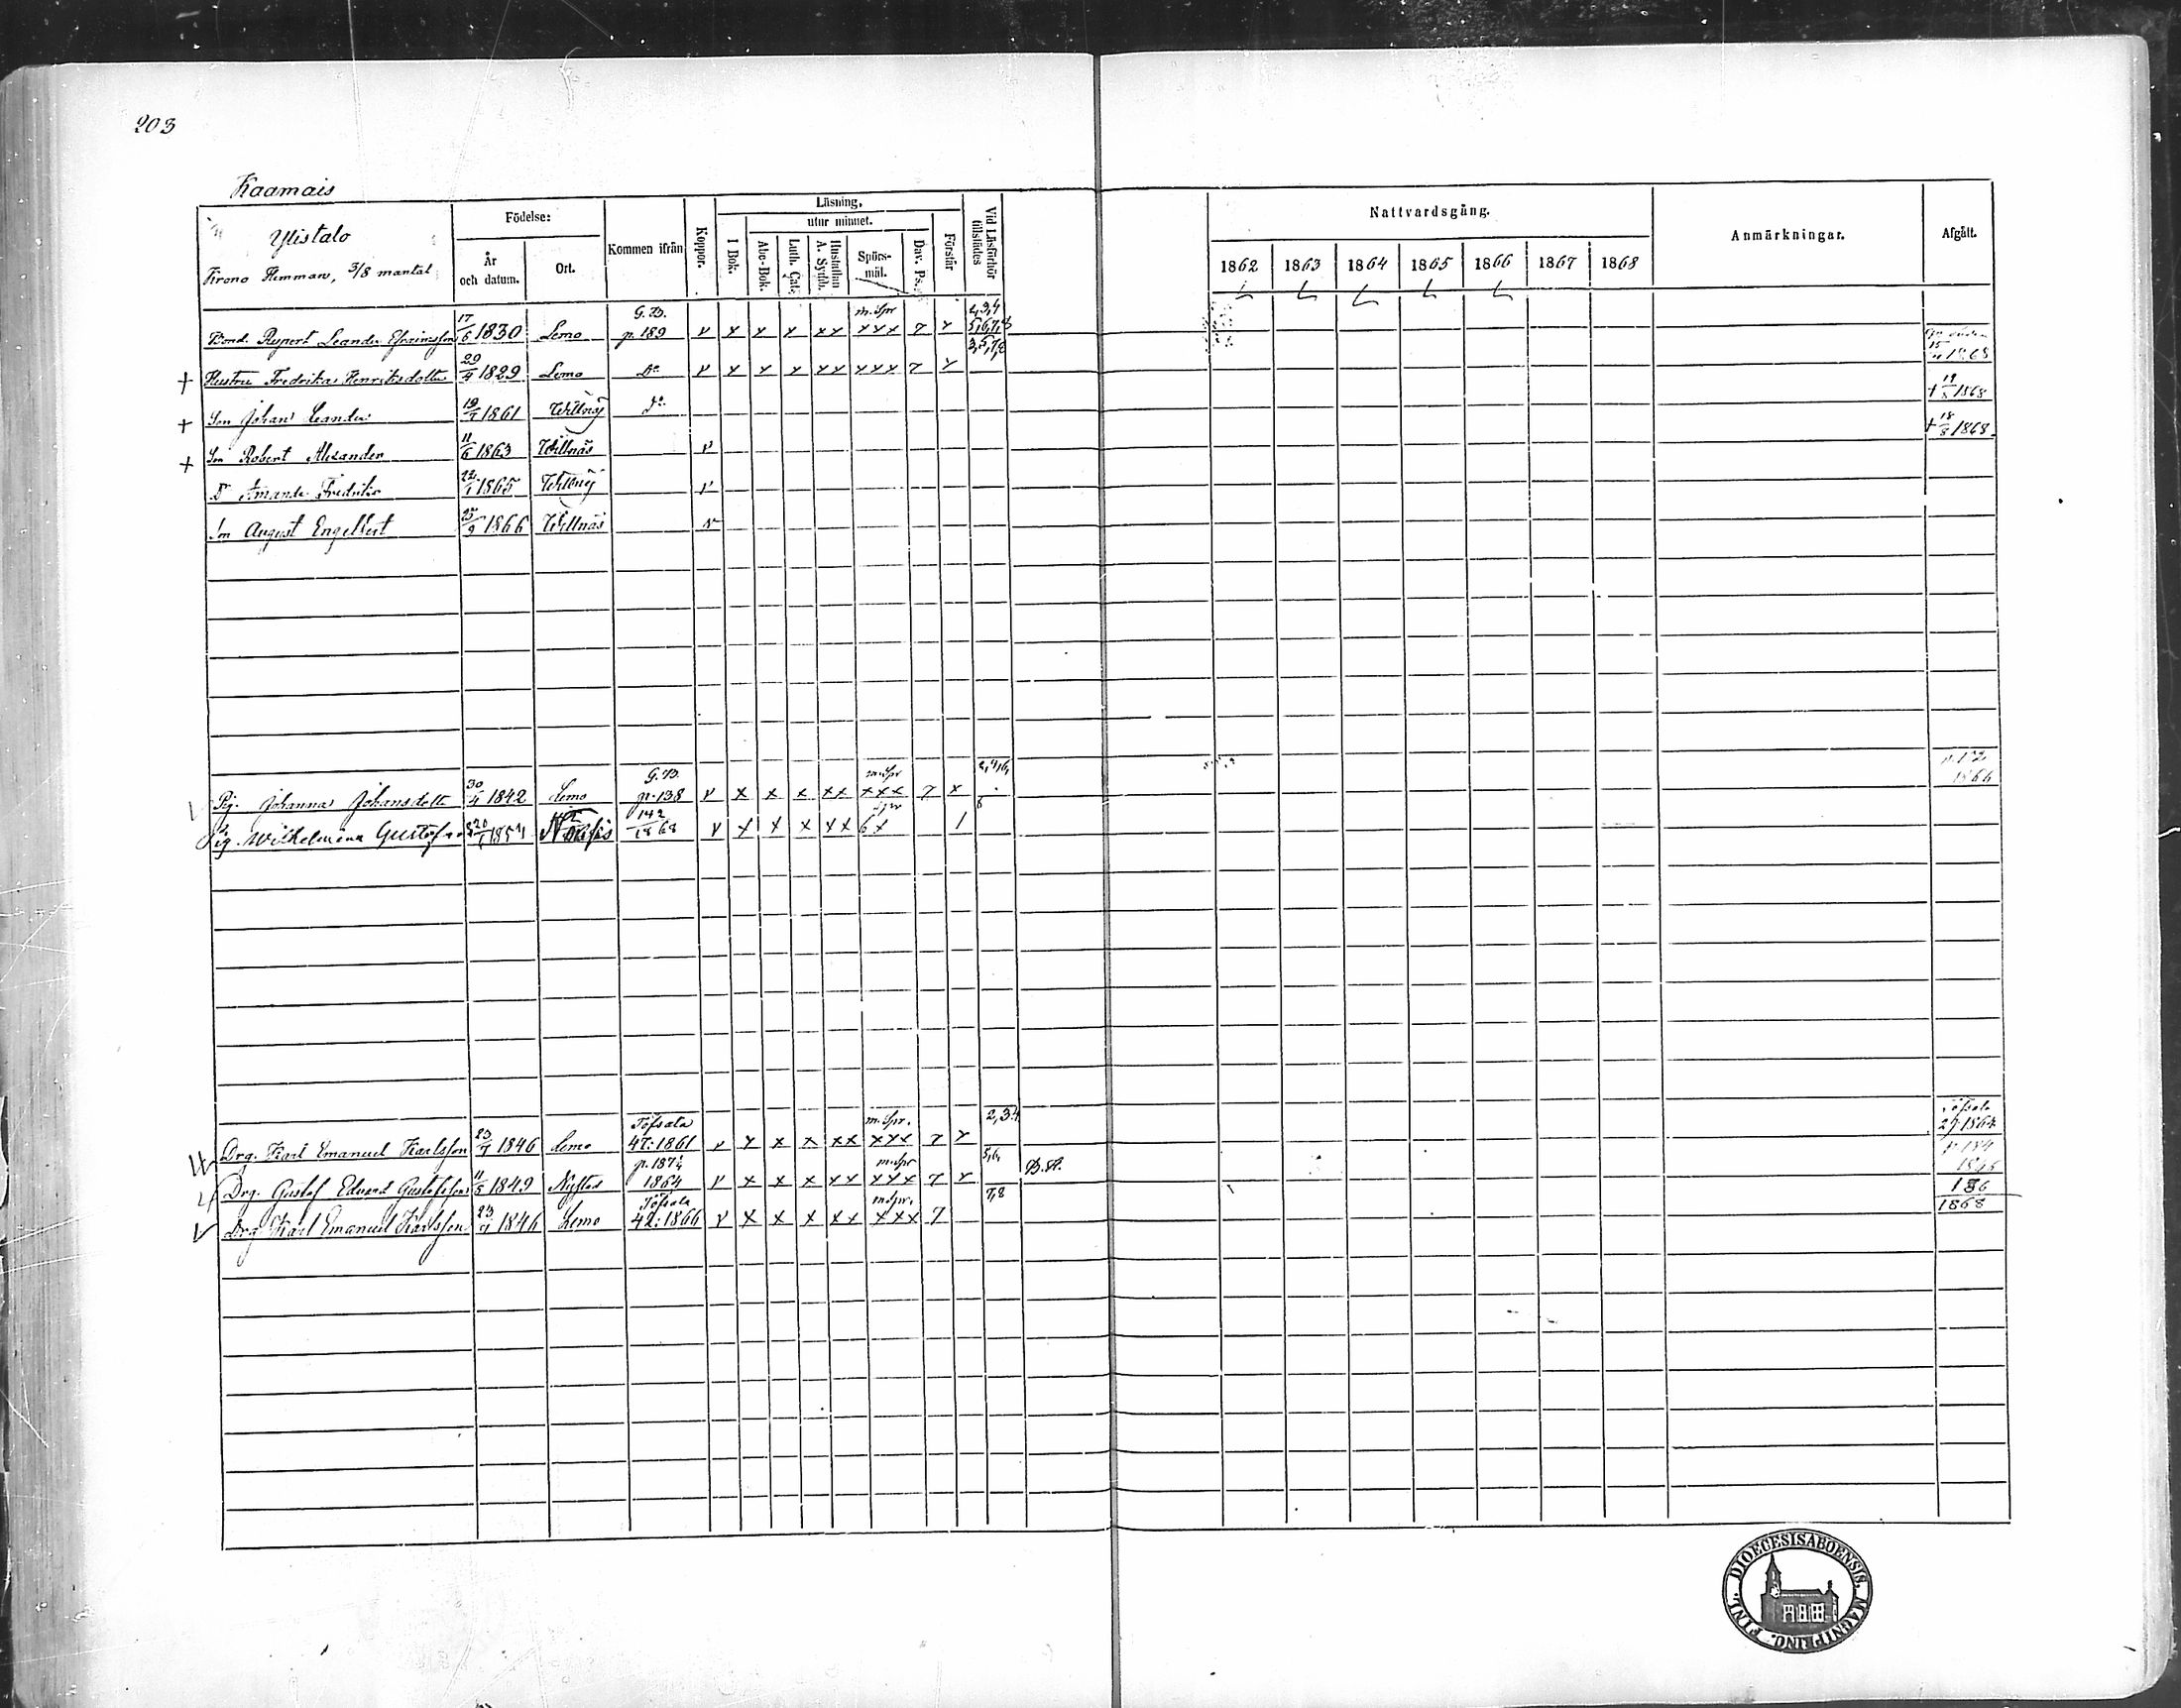 203
Kaamais
Ylistalo
Krono Hemman, 3/8 mantal
Födelse:
År och datum.
Ort.
Kommen ifrån
Koppor.
Läsning,
I Bok.
utur minnet.
Abc-Bok.
Luth. Cat.
Hustaflan A. Symb.
Spörs-mål.
Dav. Ps.
Förstår
Vid Läsförhör tillstädes
Nattvardsgång.
1862 1863 1864 1865 1866 1867 1868
Anmärkningar.
Afgått.
G.B. m. Spr 2,3,4
Bond. Rupert Leander Efraimsson 17/6 1830 Lemo p. 189 v x x x xx xxx 7 x 5,6,7,8
3,5,7,8
+ Hustru Fredrika Henriksdotter 29/4 1829 Lemo Do v x x x xx xxx 7 x 1868
+ Son Johan Leander 19/7 1861 Willnäs Do + 19/8 1868
+ Son Robert Alexander 11/6 1863 Willnäs v + 18/8 1868
Dr Amanda Fredrika 22/1 1865 Willnäs v
Son August Engelbert 25/9 1866 Willnäs v
G.B. m. Spr 2,4,6,
Pig. Johanna Johansdotter 30/4 1842 Lemo p. 138 v x x x xx xxx 7 x 1866
8
Pig. Wilhelmina Gustafsd 20/1 Nousis 142/1868 v x x x xx 6x 1
Töfsala m. Spr. 2,3,4 Töfsala
Drg. Karl Emanuel Karlsson 23/7 1846 Lemo 47: 1861 v x x x xx xxx 7 x 27 1864
p. 187 m. Spr 5,6, B.A.
Drg. Gustaf Edvard Gustafsson 11/5 1849 Nystad 1864 v x x x xx xxx 7 x 1866
Töfsala m. Spr. 7,8 186
Drg Karl Emanuel Karlsson 23/7 1846 Lemo 42: 1866 v x x x xx xxx 7 1868
DIOECESIS ABOENSIS. MAGNI PRINC. FINL.